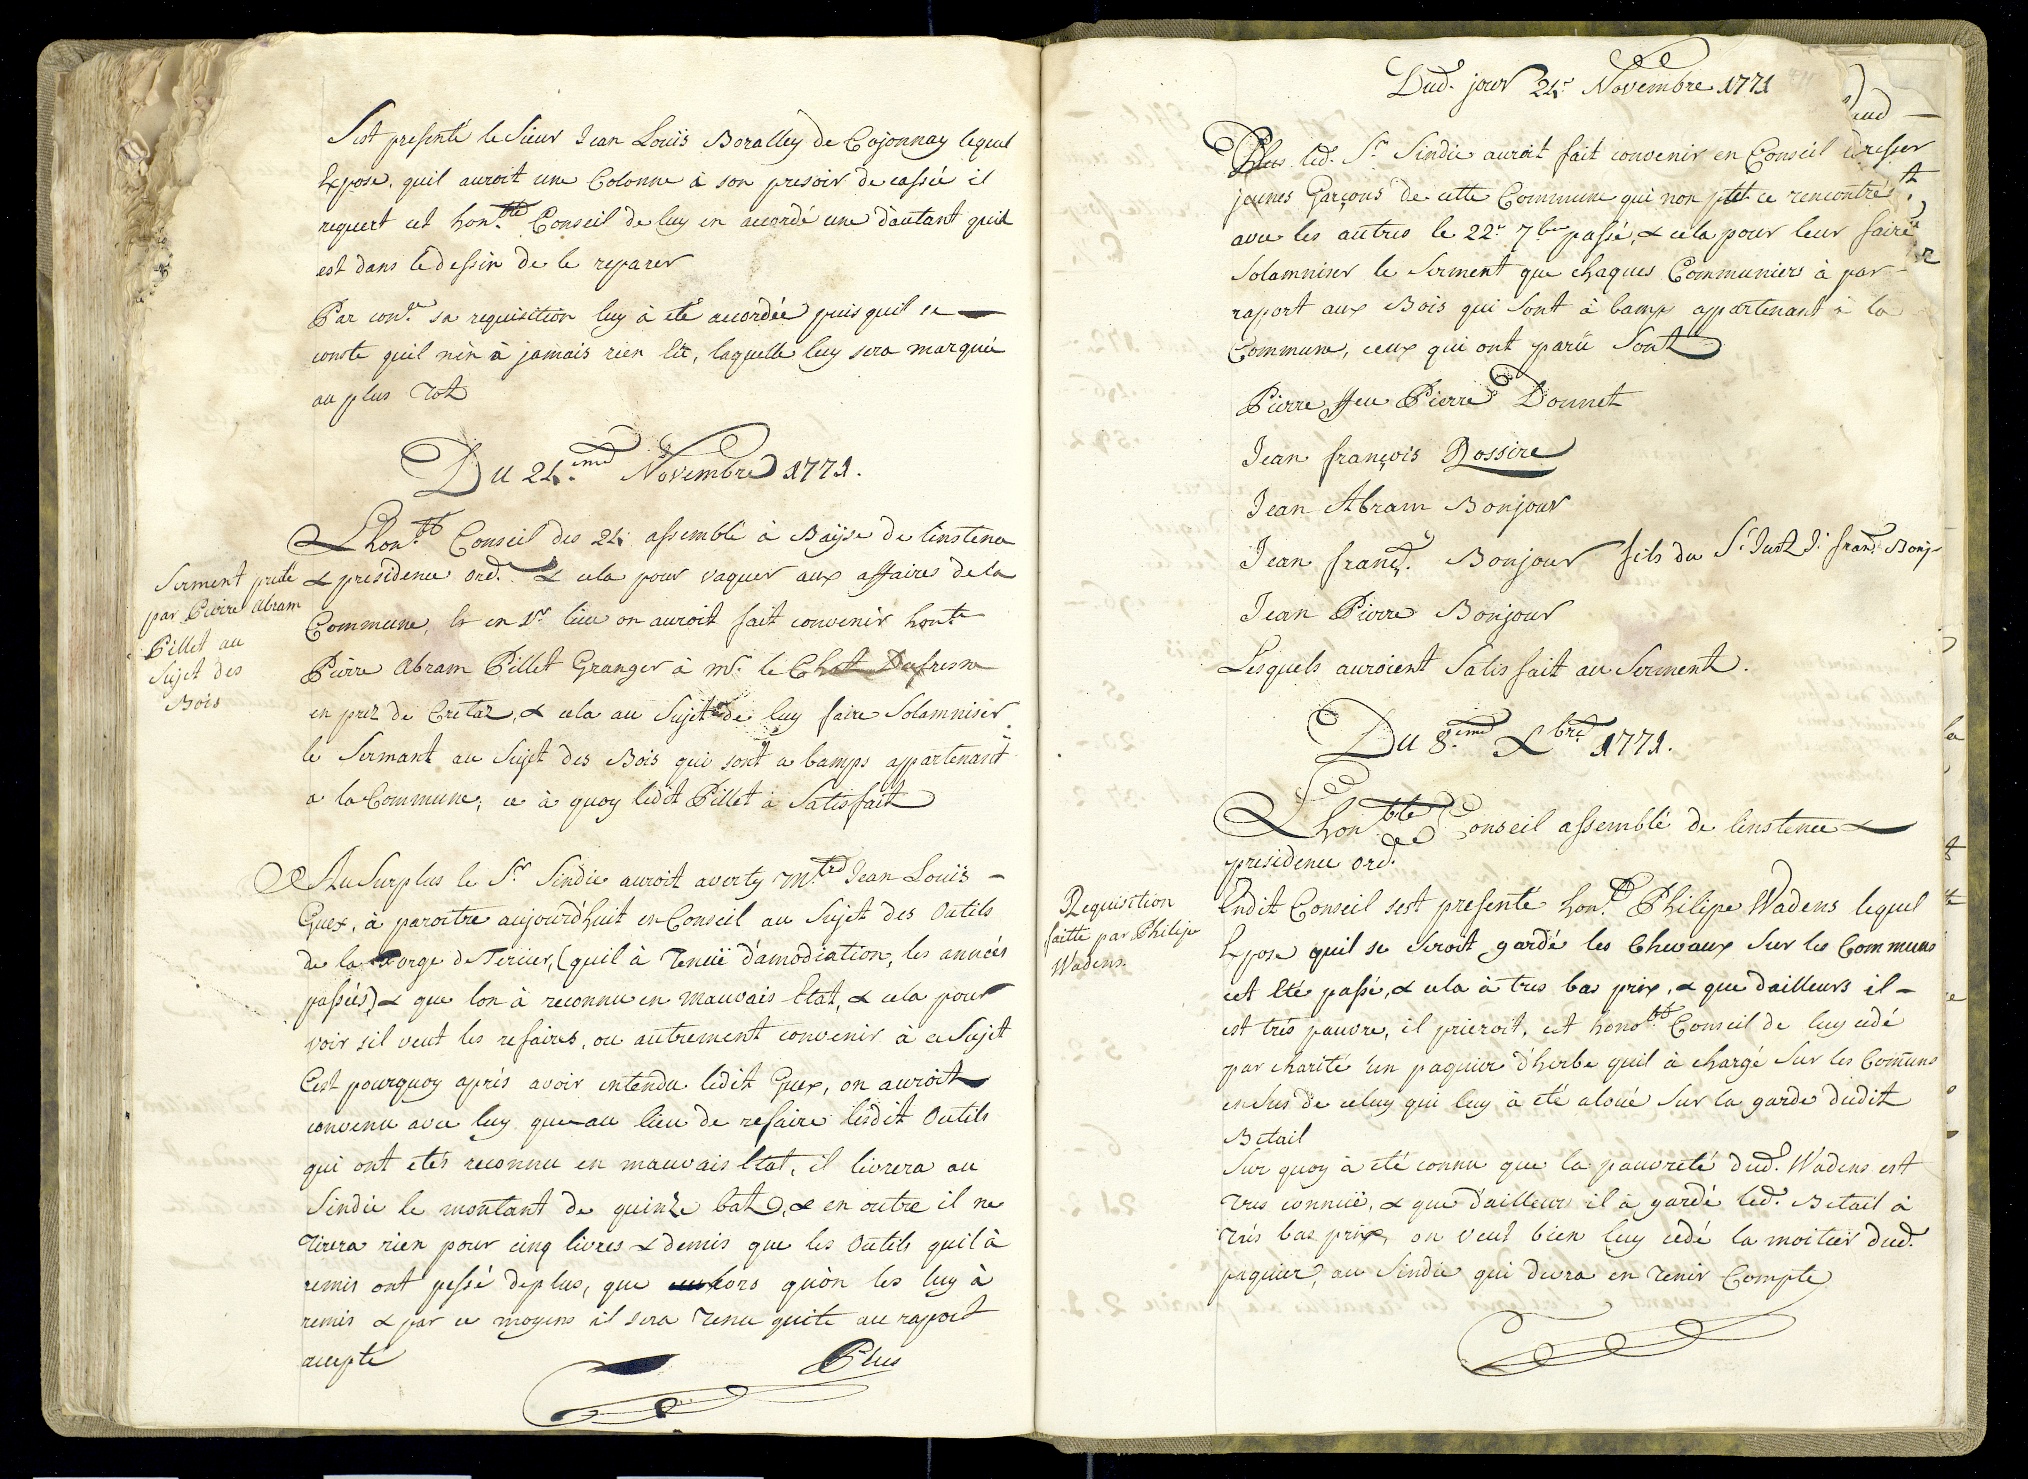 Sest presenté le Sieur Jean Louïs Boralley de Cojonnay lequel
Expose, quil auroit une Colonne à son presoir de cassée il
requert cet hon.ble Conseil de luy en accordé une dàutant quil
est dans le dessin de le reparer
Par con.e sa requisition luy à eté accordée puis quil se
conste quil nèn à jamais rien eü, laquelle luy sera marquée
au plus Tot
Du 24.eme Novembre 1771.
Serment preté
par Pierre Abram
Pillet au
Sujet des
Bois
Lhon.ble Conseil des 24 assemblé à Baÿse de linstence
& presidence ord.e & cela pour vaquer aux affaires de la
Commune, Et en 1.er lieu on auroit fait convenir honte
Pierre Abram Pillet Granger à m.r le Chat Dufresne
en prez de Cretaz, & cela au Sujet de luy faire Solamniser
le Sermant au Sujet des Bois qui sont a bamps appartenant
a la Commune, ce à quoy ledit Pillet à Satisfait
Au Surplus le S.r Sindic auroit averty m.tre Jean Louïs
Guex, à paroitre aujourd'huit en Conseil au Sujet des Outils
de la Forge de Tercier, (quil à Tenuë d'amodiation, les années
passées) & que lon à reconnu en mauvais Etat, & cela pour
voir sil veut les refaires, ou autrement convenir à ce Sujet
Cest pourquoy aprés avoir entendu ledit Guex, on auroit
convenu avec luy que au lieu de refaire lesdit Outils
qui ont etés reconnu en mauvais Etat, il livrera au
Sindic le montant de quinze batz, & en outre il ne
Tirera rien pour cinq livres & demis que les Outils quil à
remis ont pessé de plus, que lors quòn les luy à
remis & par ce moyens il sera Tenu quite au raport
accepté
Plus
Dud. jour 24e Novembre 1771
Plus led. S.r Sindic auroit fait convenir en Conseil dresser
jeunes Garçons de cette Commune qui non ptet ce rencontrés
avec les autres le 22e 7bre passé, & cela pour leur faire
Solamniser le Serment que chaques Communiers à par
raport aux Bois qui sont à bamps appartenant à la
Commune, ceux qui ont parû Sont
Pierre ffeu Pierre Donnet
Jean françois Rossire
Jean Abram Bonjour
Jean franç. Bonjour fils du S.r Just J. fran. Bonj-
Jean Pierre Bonjour
Lesquels auroient Satisfait au Serment.
Du 8.eme Xbre 1771.
Lhon.ble Conseil assemblé de linstence &
presidence ord.e
Requisition
faitte par Philipe
Wadens.
Endit Conseil sest presenté hon.te Philipe Wadens lequel
Expose quil se seroit gardé les Chevaux sur les Communs
cet Eté passé, & cela à tres bas prix, & que dailleurs il
est trés pauvre, il prieroit, cet hono.ble Conseil de luy cedé
par charité un paquier dherbe quil à chargé sur les Com̄uns
ensus de celuy qui luy à eté aloüé sur la garde dudit
Betail
Sur quoy à eté connu que la pauvreté dud. Wadens est
Tres connuë, & que d'ailleur il à gardé led. Betail à
Trés bas prix, on veut bien luy cedé la moitier dud.
paquier, au Sindic qui devra en Tenir Compte